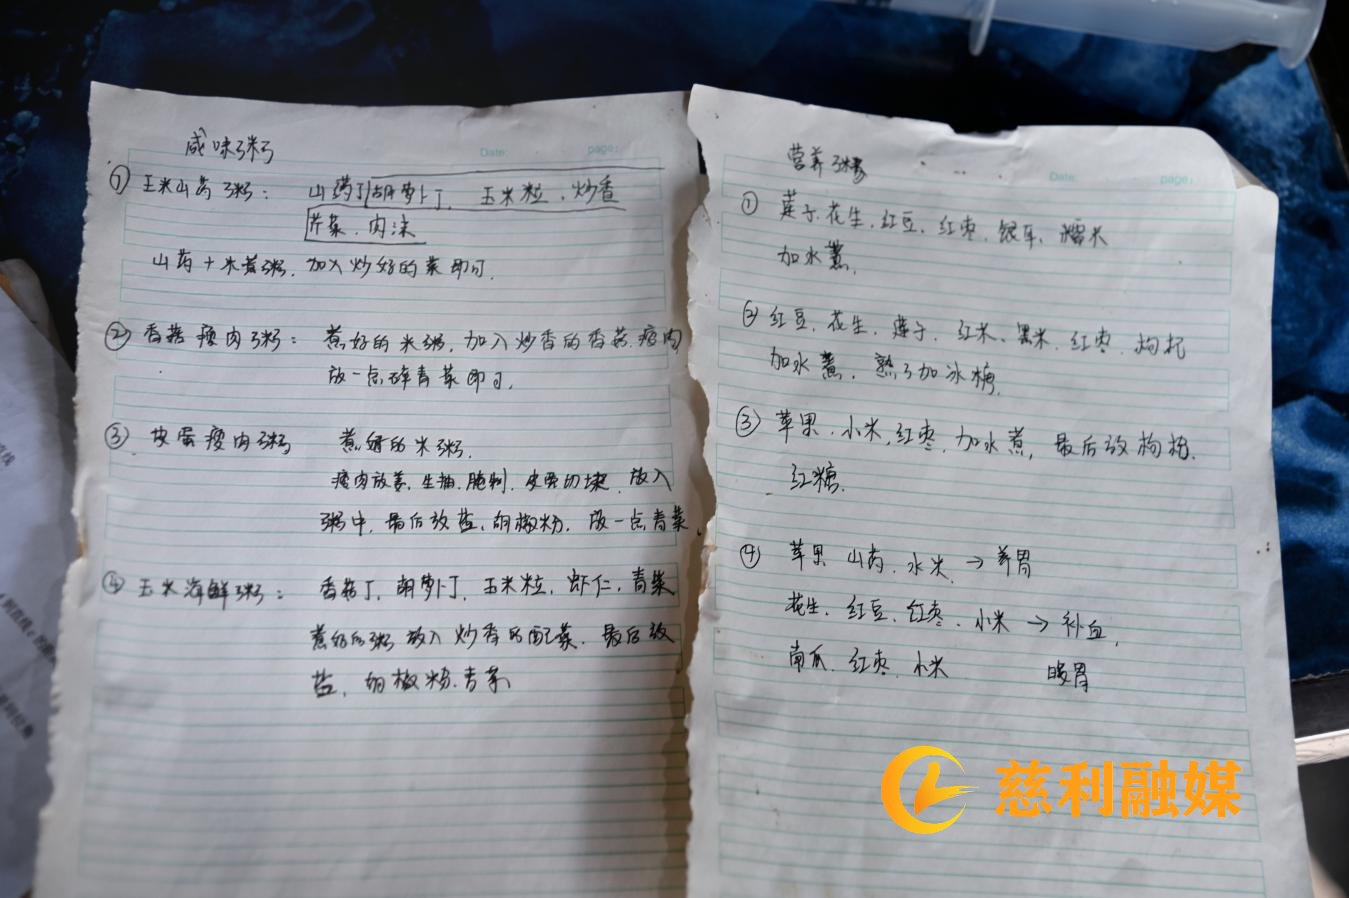 咸味粥
Date:
page:
① 玉米山药粥： 山药丁 胡萝卜丁、玉米粒、炒香
芹菜、肉沫
山药＋米煮粥，加入炒好的菜即可．
② 香菇瘦肉粥： 煮好的米粥，加入炒香的香菇、瘦肉
放一点碎青菜即可．
③ 皮蛋瘦肉粥 煮好的米粥．
瘦肉放姜、生抽、腌制．皮蛋切块．放入
粥中，最后放盐、胡椒粉．放一点青菜．
④ 玉米海鲜粥： 香菇丁，胡萝卜丁，玉米粒，虾仁，青菜
煮好的粥放入炒香的配菜．最后放
盐，胡椒粉、青菜
营养粥
Date:
page:
① 莲子、花生、红豆、红枣、银耳、糯米
加水煮．
② 红豆、花生、莲子、红米、黑米、红枣、枸杞
加水煮，熟了加冰糖．
③ 苹果、小米、红枣，加水煮，最后放枸杞．
红糖．
④ 苹果 山药、水米、→ 养胃
花生、红豆、红枣、小米 → 补血，
南瓜、红枣、小米 暖胃
慈利融媒